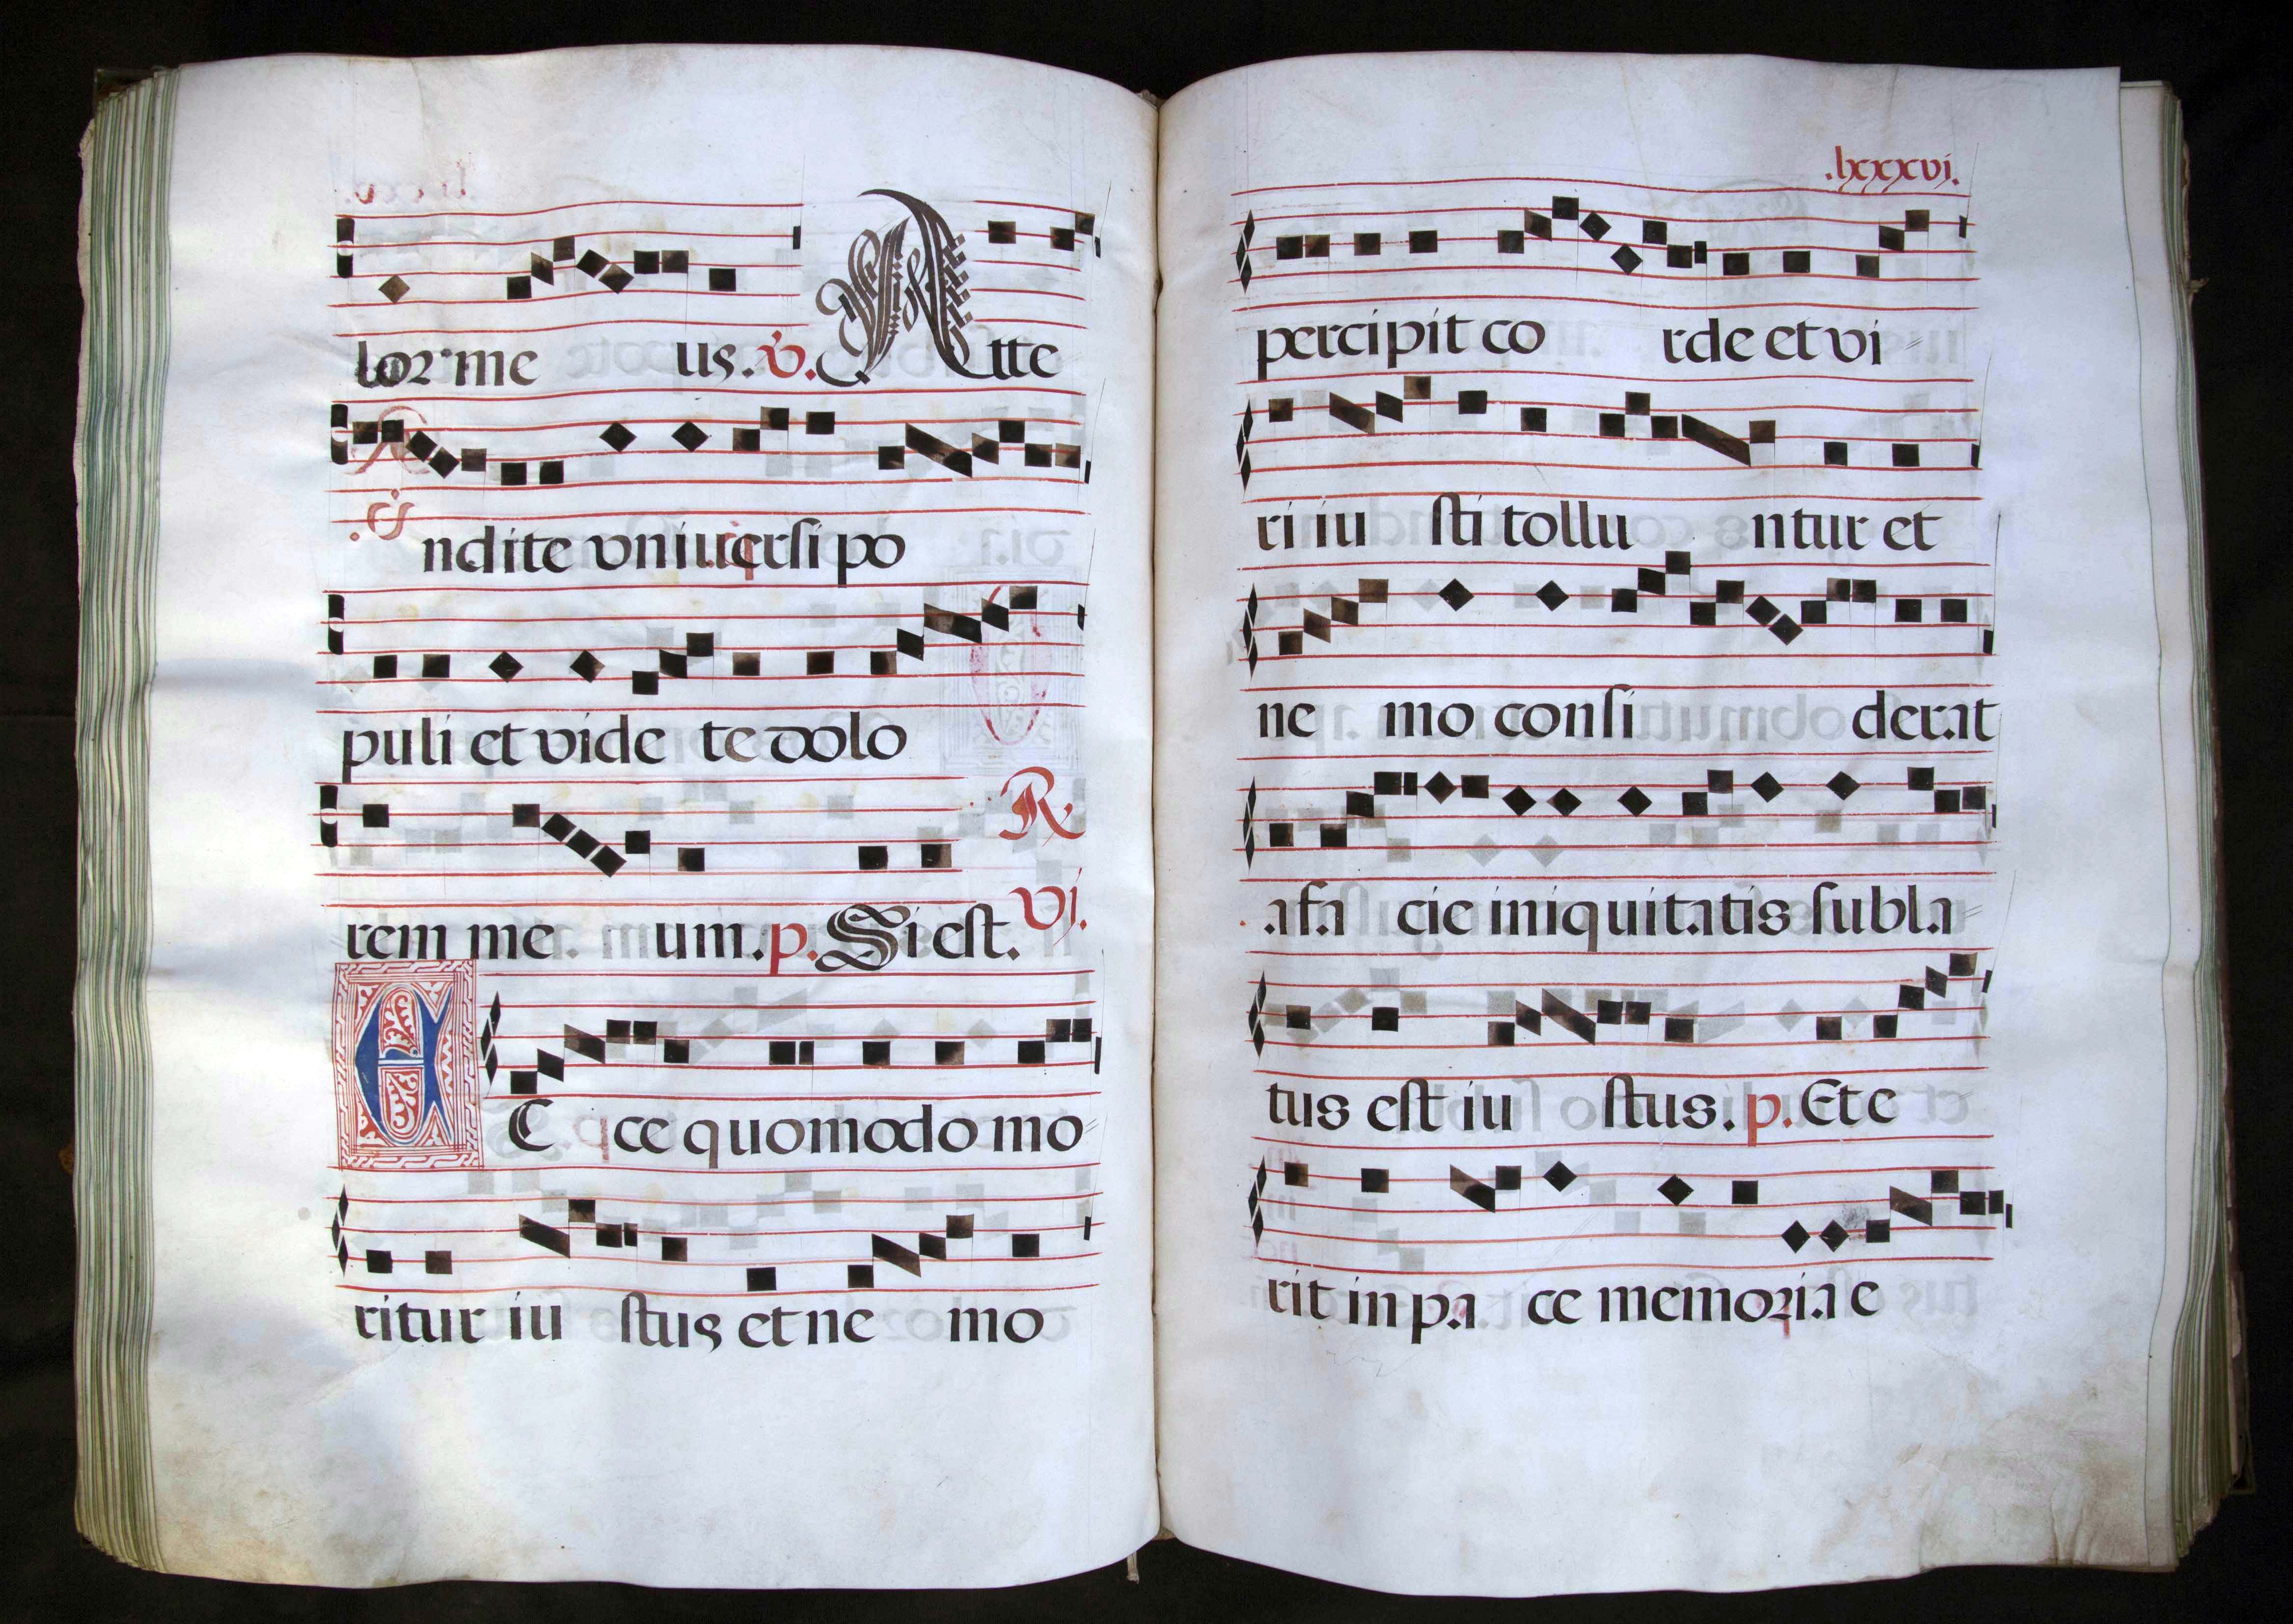 lor me us. v. Atte
ndite vniuersi po
puli et vide te dolo
R.
rem me um. p. Si est. vj.
E C ce quomodo mo
ritur iu stus et ne mo
.lxxxvj.
percipit co rde et vi
ri iu sti tollu ntur et
ne mo consi derat
a fa cie iniquitatis subla
tus est iu stus. p. Et e
rit in pa ce memoria e